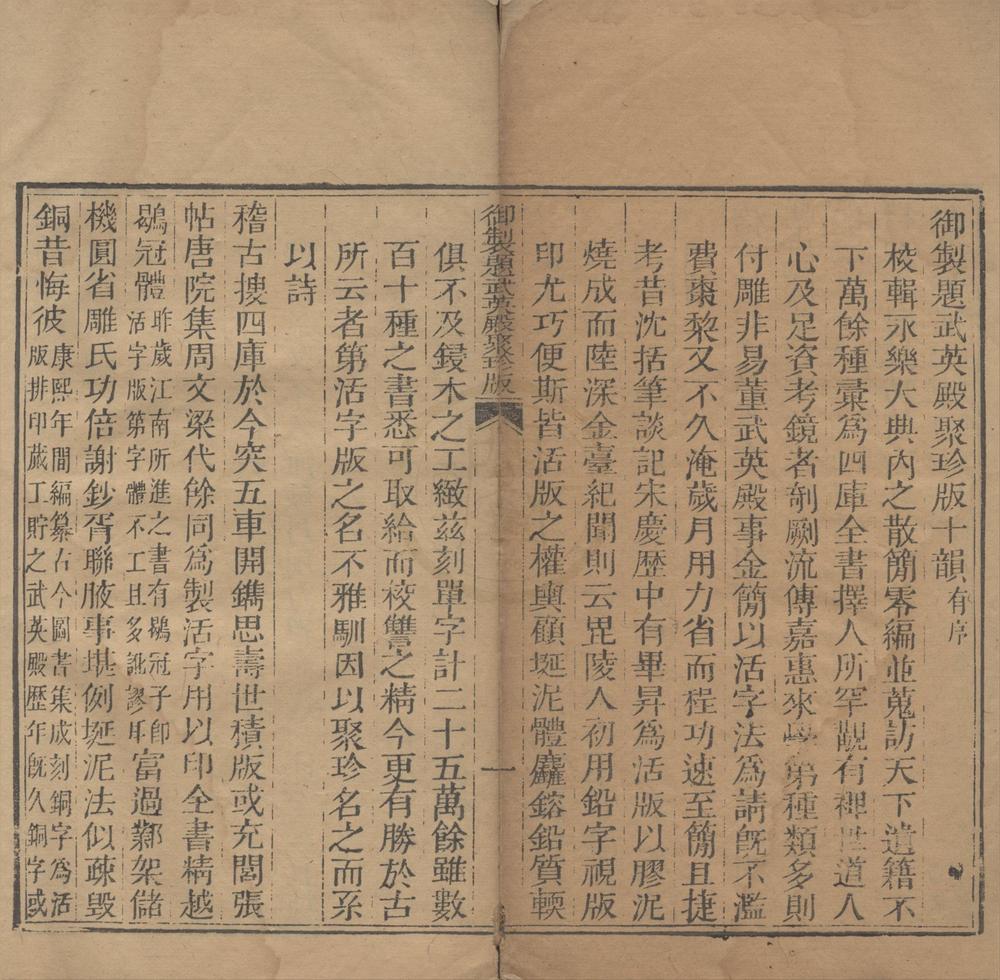 御製題武英殿聚珍版十韻有序
校輯永樂大典內之散簡零編並蒐訪天下遺籍不
下萬餘種彙爲四庫全書擇人所罕觀有裨世道人
心及足資考鏡者剞劂流傳嘉惠來學第種類多則
付雕非易董武英殿事金簡以活字法爲請旣不濫
費棗黎又不久淹歲月用力省而程功速至簡且捷
考昔沈括筆談記宋慶歷中有畢昇爲活版以膠泥
燒成而陸深金臺紀聞則云毘陵人初用鉛字視版
印尤巧便斯皆活版之權輿顧埏泥體麤鎔鉛質輭
御製題武英殿聚珍版
一
俱不及鋟木之工緻兹刻單字計二十五萬餘雖數
百十種之書悉可取給而校讐之精今更有勝於古
所云者第活字版之名不雅馴因以聚珍名之而系
以詩
稽古搜四庫於今突五車開鐫思壽世積版或充閭張
帖唐院集周文梁代餘同爲製活字用以印全書精越
鶡冠體昨歲江南所進之書有鶡冠子卽活字版第字體不工且多訛謬耳富過鄴架儲
機圓省雕氏功倍謝鈔胥聯腋事堪例埏泥法似疎毀
銅昔悔彼康熙年間編纂古今圖書集成刻銅字爲活版排印蕆工貯之武英殿歷年旣久銅字或